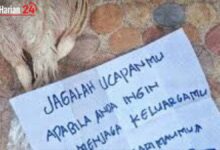 Harian 24
JAGALAH UCAPANMU
APABILA ANDA INGIN
MENJAGA KELUARGAMU